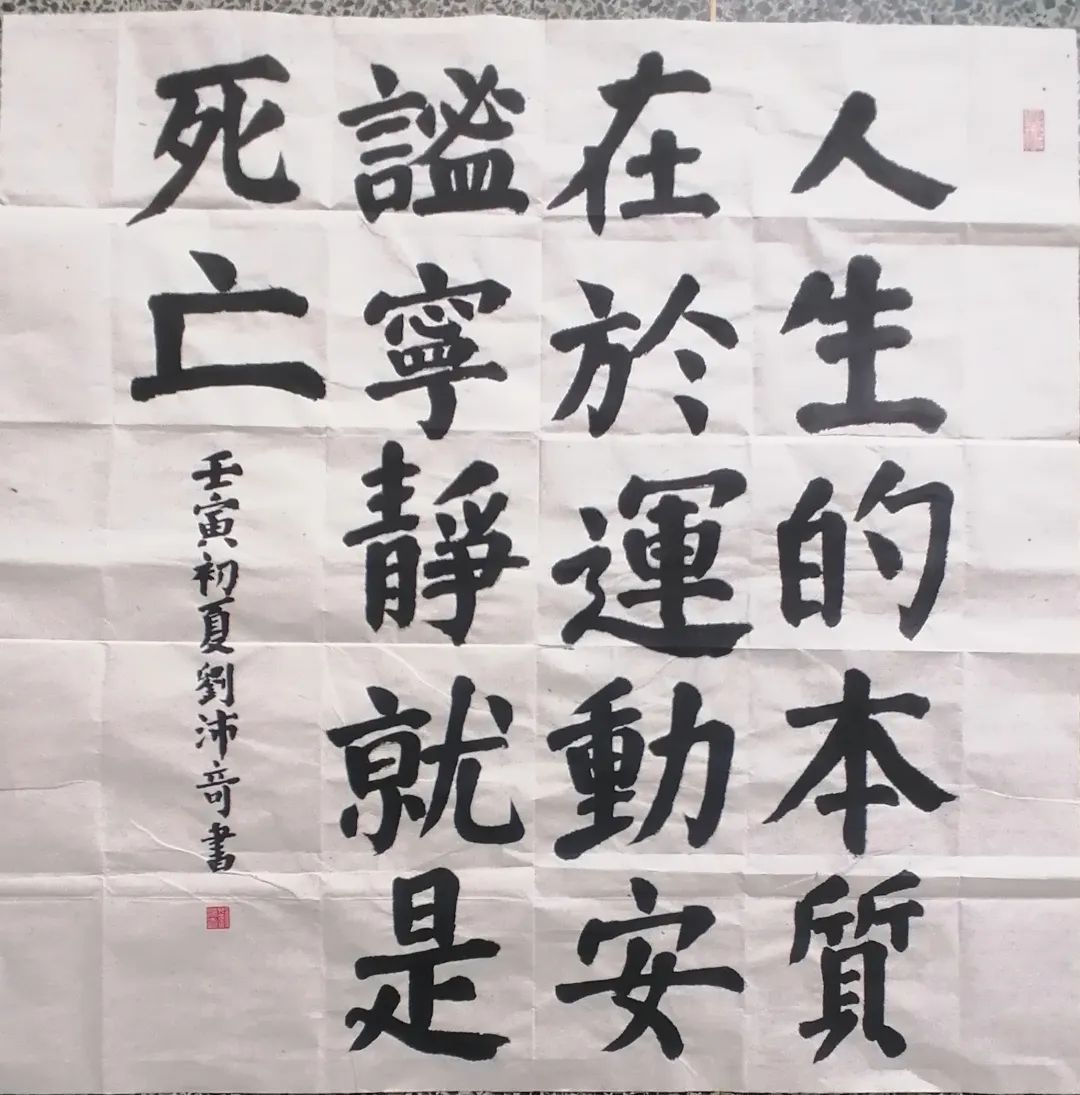 人生的本質
在於運動安
謐寧靜就是
死亡
壬寅初夏劉沛奇書